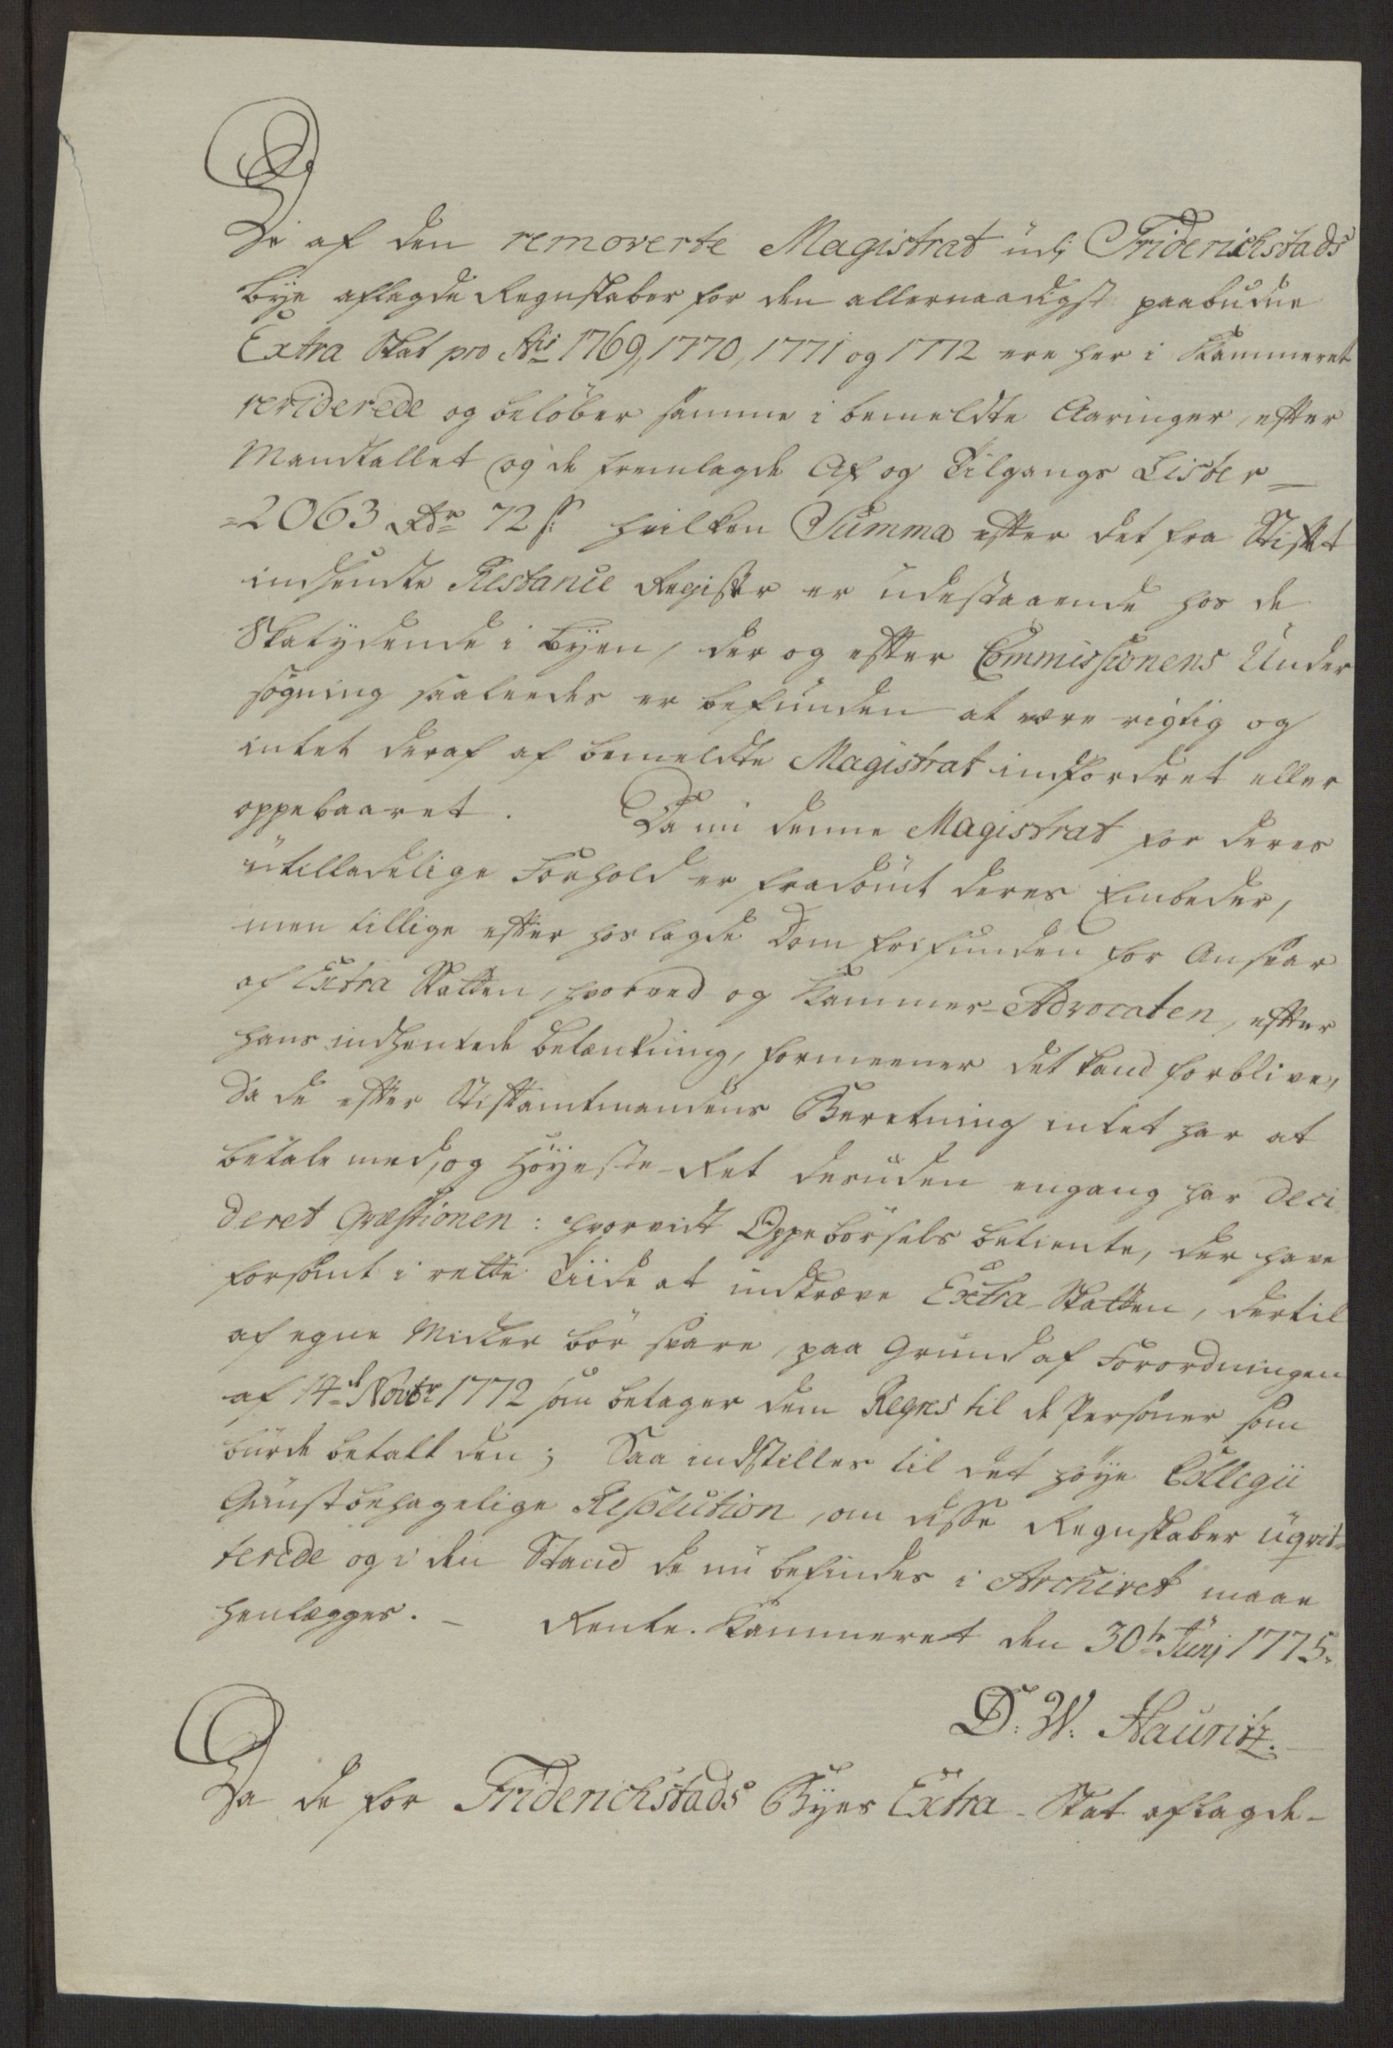 De af den removerte Magistrat udj Friderichstads
Bye aflagde Regnskaber for den allernaadigst paabudne
Extra Skat pro Ao 1769, 1770, 1771 og 1772 ere her i Kammeret
reviderede og beløber samme i bemeldte Aaringer, efter
Mandtallet og de fremlagde Af og Tilgangs Lister
= 2063 Rdr 72 s: hvilken Summa efter det fra Stiftet
indsendte Restance Register er udestaaende hos de
Skatydende i Byen, der og efter Commissionens Under
søgning saaleedes er befunden at være rigtig og
intet deraf af bemeldte Magistrat indfordret eller
oppebaaret. Da nu denne Magistrat for deres
utilladelige Forhold er fradømt deres Embeder,
men tillige efter hoslagde Dom frifunden for Ansvar
af Extra Skatten, hvorved og Kammer-Advocaten, efter
hans indhentede betænkning, formeener det kand forblive,
da de efter Stiftamtmandens Beretning intet har at
betale med, og Høyeste-Ret desuden engang har deci
deret Qvæstionen: hvorvidt Oppebørsels betiente, der have
forsømt i rette Tiide at inddrive Extra-Skatten, dertil
af egne Midler bør svare, paa Grund af Forordningen
af 14d Novbr 1772 som betager dem Regres til de Personer som
burde betalt den; Saa indstilles til det høye Collegii
Gunstbehagelige Resolution, om disse Regnskaber uqvit-
terede og i den Stand de nu befindes i Archivet maae
henlægges. - Rente-Kammeret den 30te Junj 1775.
D. W. Hauritz.
Da de for Friderichstads Byes Extra-Skat aflagde-